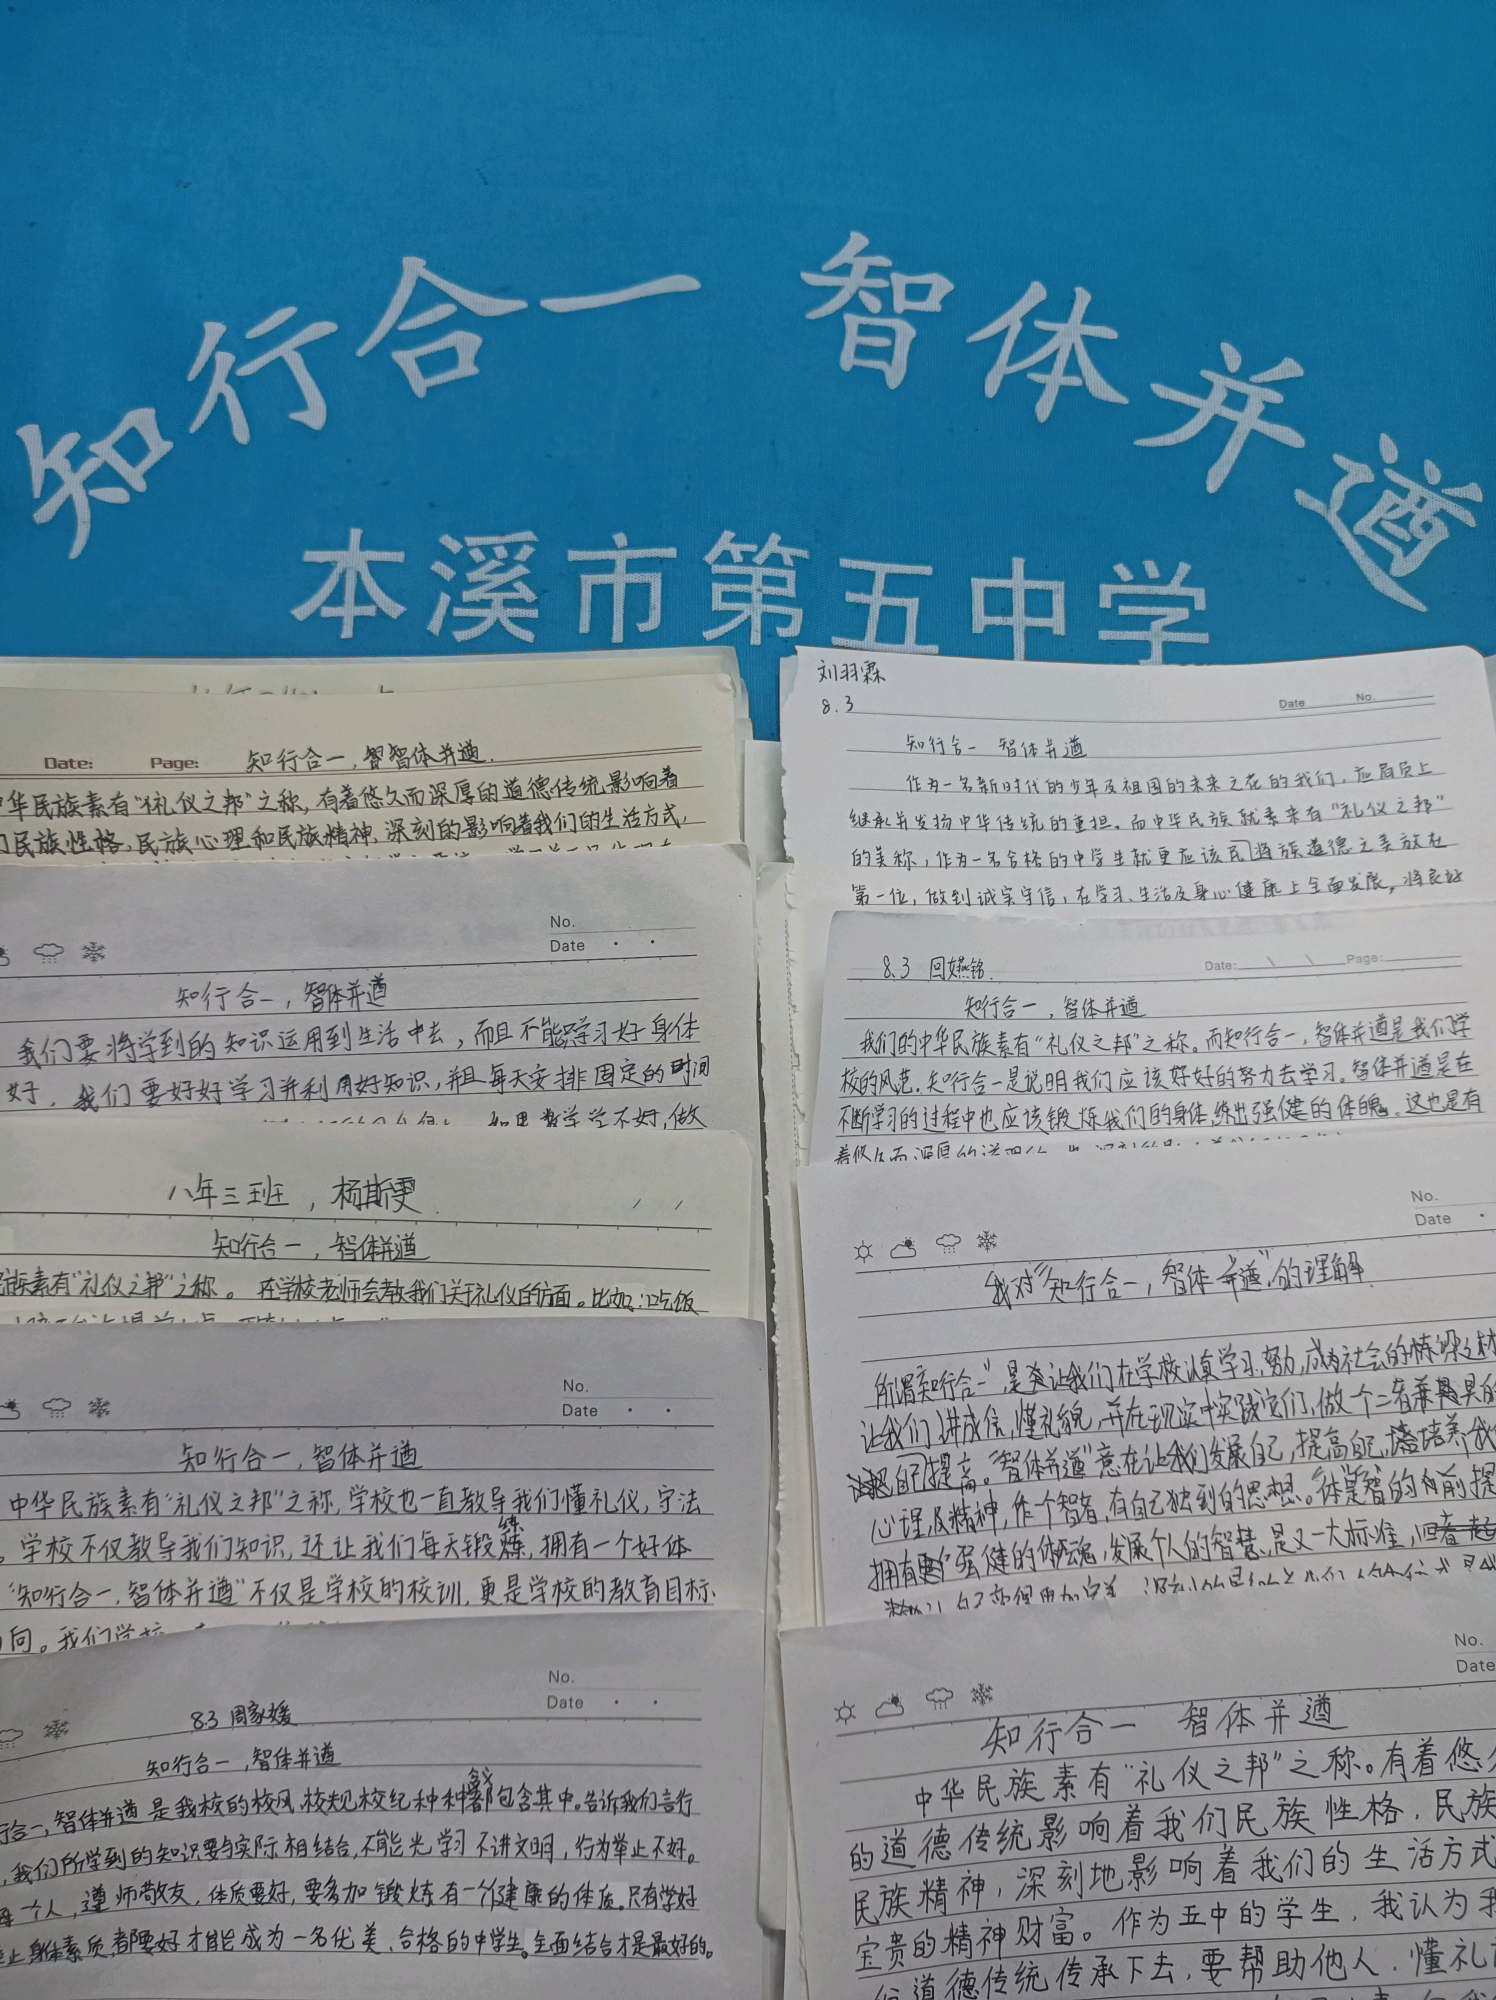 知行合一 智体并遒
本溪市第五中学
Date: Page: 知行合一，智体并遒.
中华民族素有“礼仪之邦”之称，有着悠久而深厚的道德传统影响着
们民族性格，民族心理和民族精神，深刻的影响着我们的生活方式，
No.
Date
知行合一，智体并遒
我们要将学到的知识运用到生活中去，而且不能只学习好身体
好，我们要好好学习并利用好知识，并且每天安排固定的时间
如果数学学不好，做
八年三班，杨斯雯
知行合一，智体并遒
族素有“礼仪之邦”之称。在学校老师会教我们关于礼仪的方面。比如：吃饭
No.
Date
知行合一，智体并遒
中华民族素有“礼仪之邦”之称，学校也一直教导我们懂礼仪，守法
。学校不仅教导我们知识，还让我们每天锻炼，拥有一个好体
“知行合一，智体并遒”不仅是学校的校训，更是学校的教育目标
向。我们学校
No.
Date
8.3 周家媛
知行合一，智体并遒
行合一，智体并遒是我校的校风，校规校纪种种都包含其中。告诉我们言行
，我们所学到的知识要与实际相结合，不能光学习不讲文明，行为举止不好。
一个人，遵师敬友，体质要好，要多加锻炼有一个健康的体质。只有学好
止身体素质，都要好才能成为一名优美、合格的中学生。全面结合才是最好的。
刘羽霖
8.3
Date No.
知行合一 智体并遒
作为一名新时代的少年及祖国的未来之花的我们，应肩负上
继承并发扬中华传统的重担。而中华民族就素来有“礼仪之邦”
的美称，作为一名合格的中学生就更应该将民族道德之美放在
第一位，做到诚实守信，在学习、生活及身心健康上全面发展，将良好
8.3 回嬿铭
Date: Page:
知行合一，智体并遒
我们的中华民族素有“礼仪之邦”之称。而知行合一，智体并遒是我们学
校的风范。知行合一是说明我们应该好好的努力去学习。智体并遒是在
不断学习的过程中也应该锻炼我们的身体，练出强健的体魄。这也是有
着悠久而深厚的道
No.
Date
我对“知行合一，智体并遒”的理解
所谓“知行合一”，是让我们在学校认真学习，努力，成为社会的栋梁之材
让我们讲诚信，懂礼貌，并在现实中实践它们，做个二者兼具的
自己提高。“智体并遒”意在让我们发展自己，提高自己，培养个我
心理及精神，作个智者，有自己独到的思想。“体”是“智”的前提
拥有强健的体魄，发展个人的智慧，是又一大标准，
No.
Date
知行合一 智体并遒
中华民族素有“礼仪之邦”之称。有着悠久
的道德传统影响着我们民族性格，民族
民族精神，深刻地影响着我们的生活方式
宝贵的精神财富。作为五中的学生，我认为我
道德传统传承下去，要帮助他人，懂礼